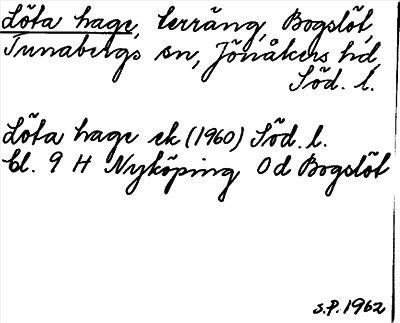 Löta hage, terräng, Bogslöt,
Tunabergs sn, Jönåkers hd,
Söd. l.
Löta hage ek (1960) Söd. l.
bl. 9 H Nyköping 0 d Bogslöt
S.P. 1962